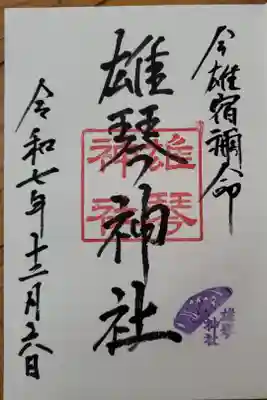 今雄宿禰命
雄琴神社
雄琴
神社
令和七年十二月六日
雄琴
神社